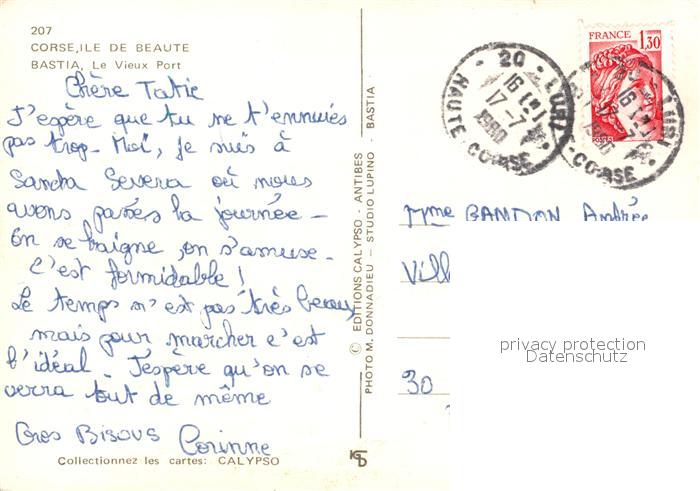 207
CORSE, ILE DE BEAUTE
BASTIA, Le Vieux Port
Chère Tatie
J'espère que tu ne t'ennuies
pas trop. Moi, je suis à
Sancta Severa où nous
avons passés la journée -
On se baigne, on s'amuse -
C'est formidable !
Le temps n'est pas très beau,
mais pour marcher c'est
l'idéal. J'espère qu'on se
verra tout de même
Gros Bisous Corinne
Collectionnez les cartes: CALYPSO
© EDITIONS CALYPSO - ANTIBES
PHOTO M. DONNADIEU - STUDIO LUPINO - BASTIA
FRANCE
1,30
20 - LURI
16 H
17-7
1980
HAUTE-CORSE
Mme BANDON Andrée
Vill
30
privacy protection
Datenschutz